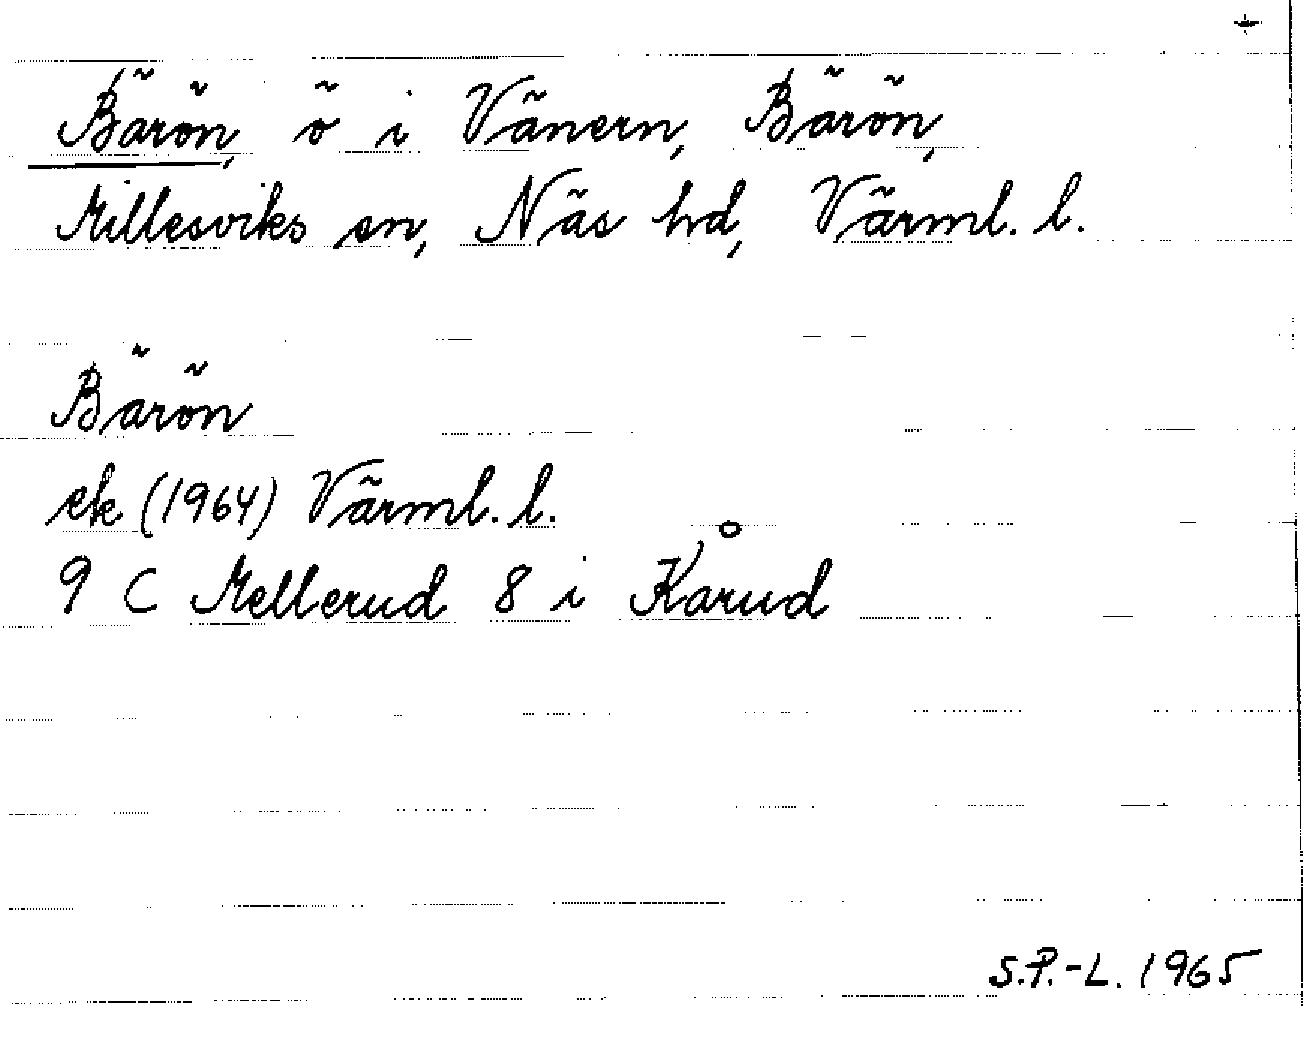 Bärön, ö i Vänern, Bärön,
Millesviks sn, Näs hd, Värml. l.
Bärön
ek (1964) Värml. l.
9 C Mellerud 8 i Kårud
S.P.-L. 1965